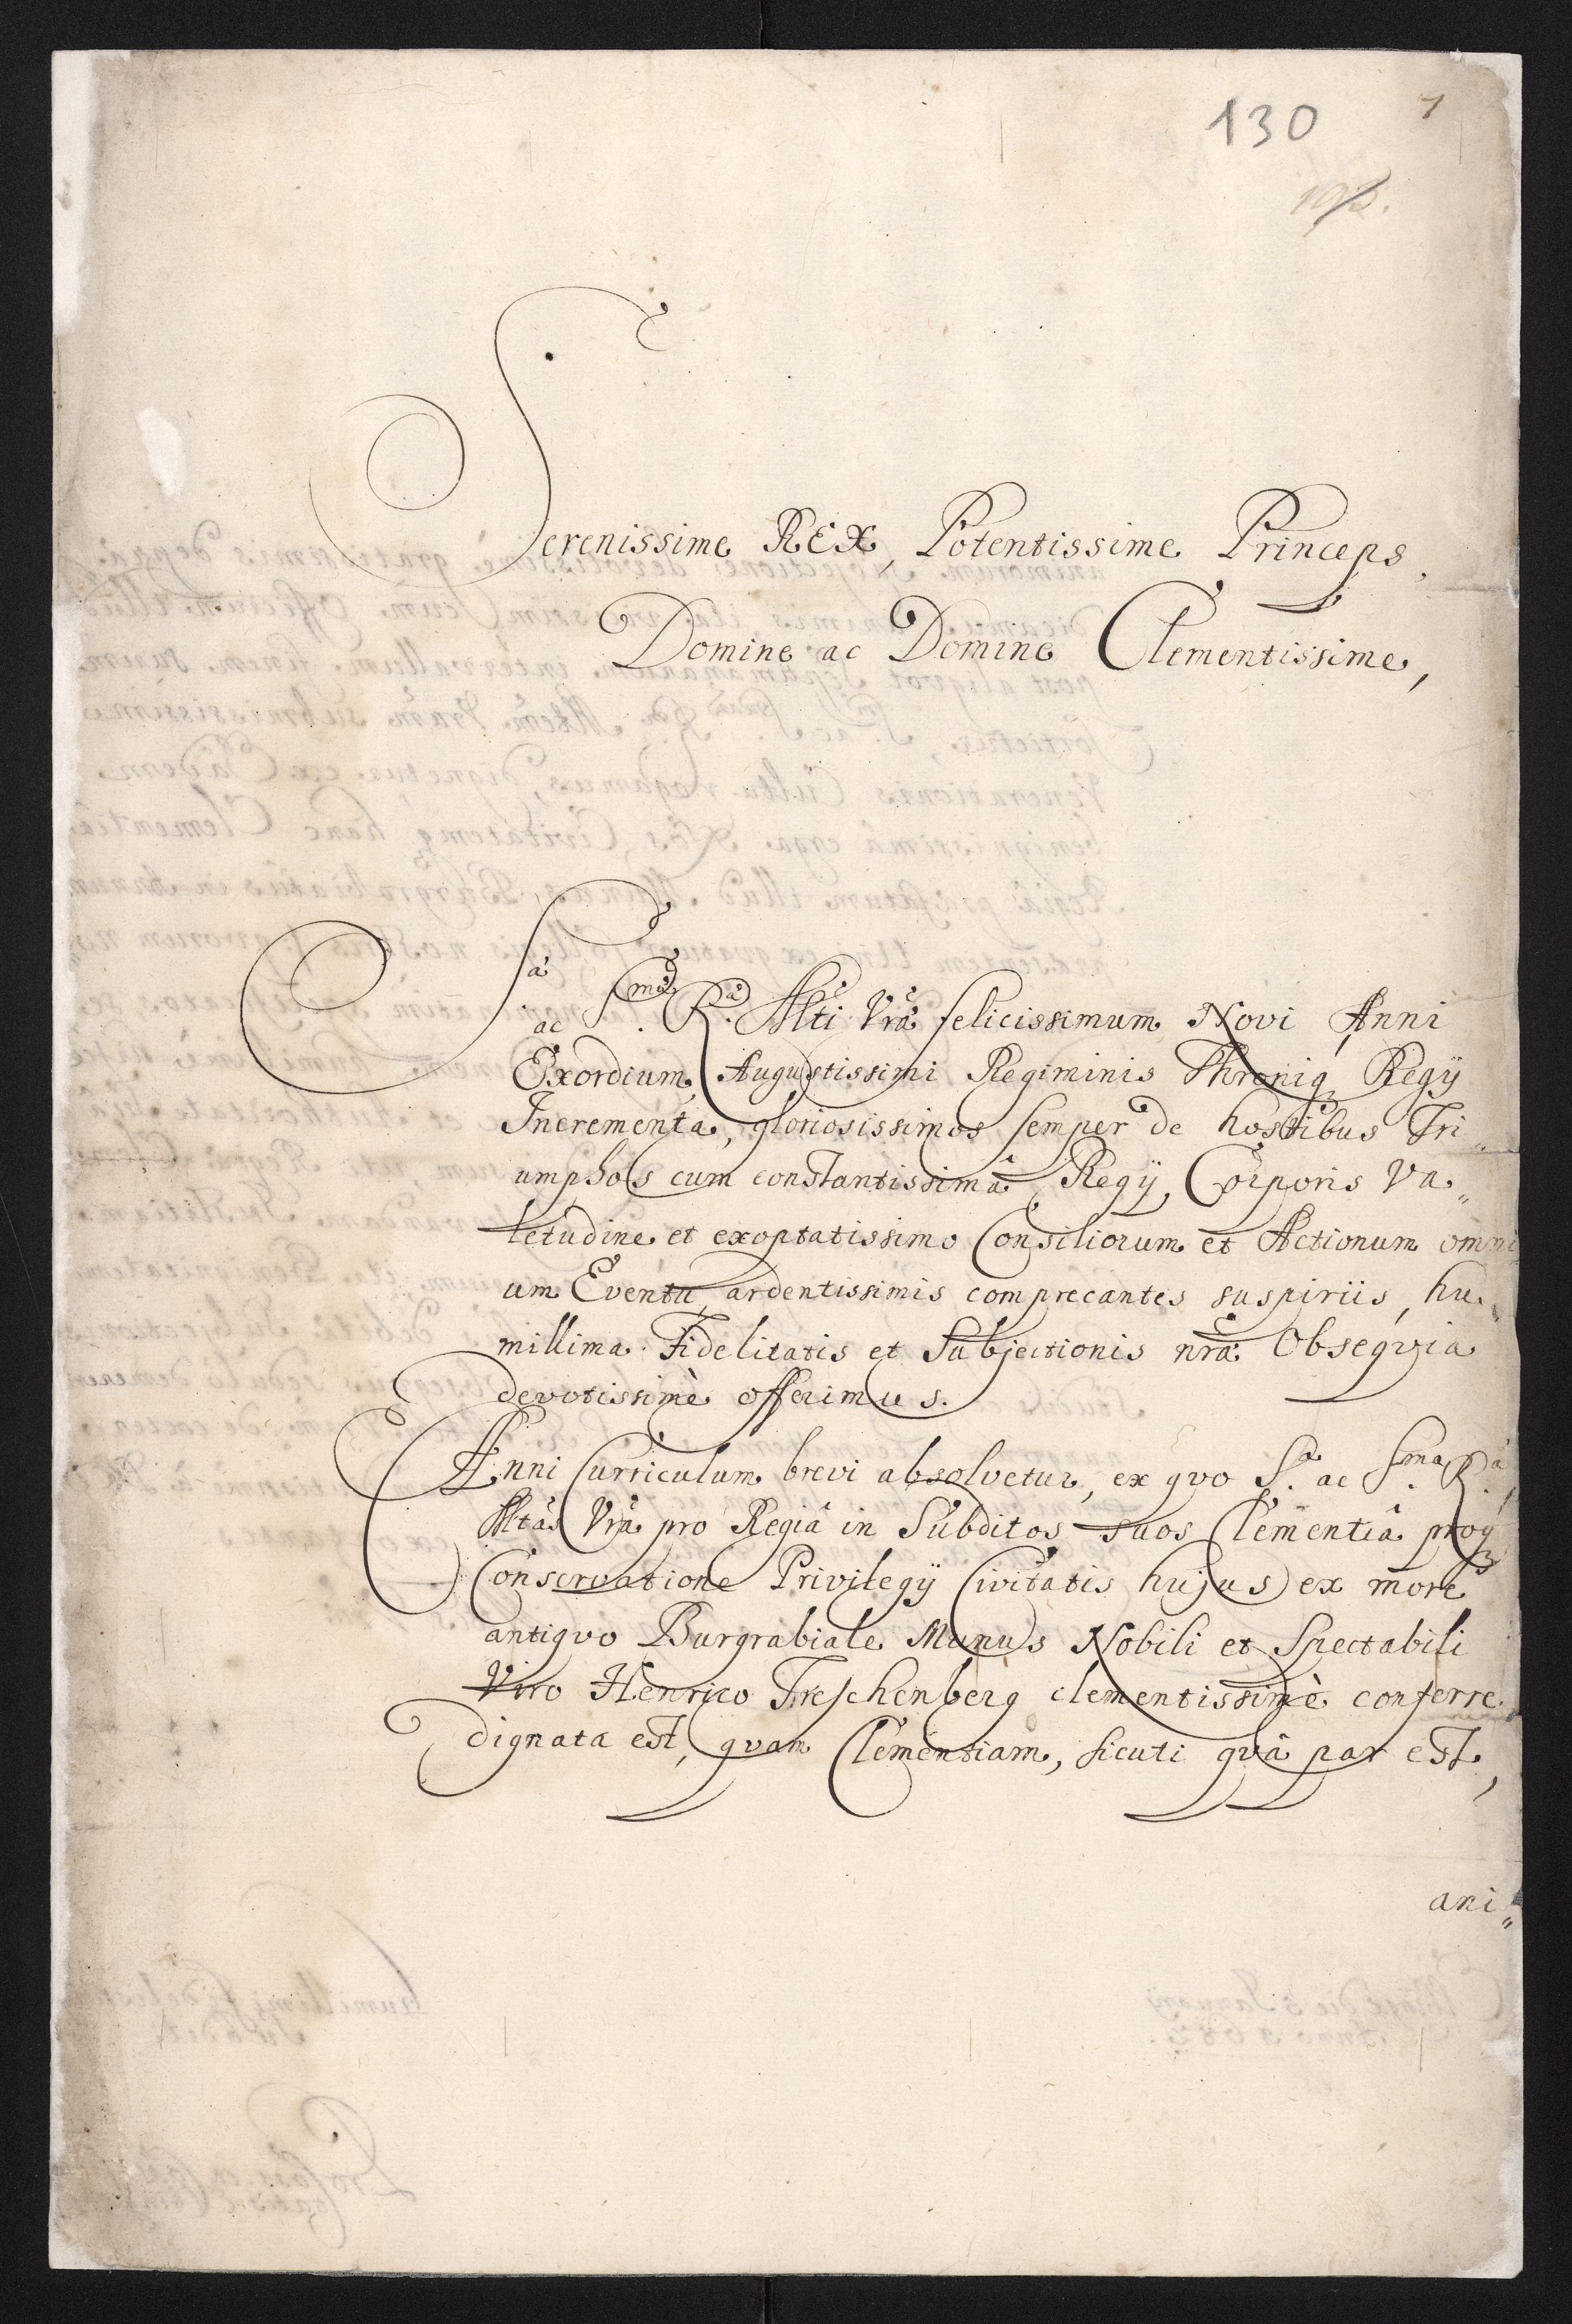 130
1
Serenissime REX, Potentissime Princeps,
Domine ac Domine Clementissime,
Sa. ac Sma. Ra. Mti Vrã felicissimum Novi Anni
Exordium, Augustissimi Regiminis Throniq Regÿ
Incrementa, gloriosissimos semper de hostibus Tri„
umphos cum constantissimâ Regÿ Corporis Va„
letudine et exoptatissimo Consiliorum et Actionum omni
um Eventu, ardentissimis comprecantes suspiriis, hu„
millima Fidelitatis et Subjectionis nrã Obseqvia
devotissimè offerimus.
Anni Curriculum brevi absolvetur, ex qvo Sa. ac Sma. Ra.
Mtas Vrã pro Regiâ in Subditos suos Clementiâ proq
Conservatione Privilegÿ Civitatis hujus ex more
antiqvo Burgrabiale Munus Nobili et Spectabili
Viro Henrico Treschenberg clementissimè conferre
dignata est, qvam Clementiam, sicuti qvâ par est,
ani„